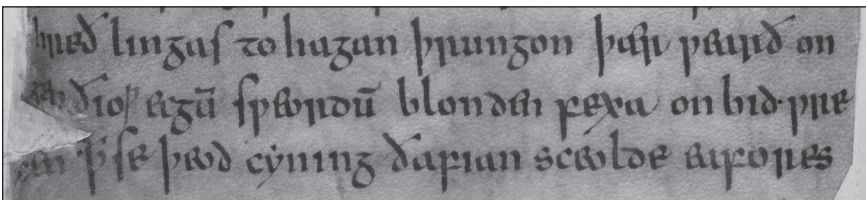 hreð lingas to hagan þrungon þær ƿearð on
gen ðioƿ ecgū sƿeordū blonden fexa on bid·ƿre
cen ꝥ se þeod cẏning ðafian sceolde eafores